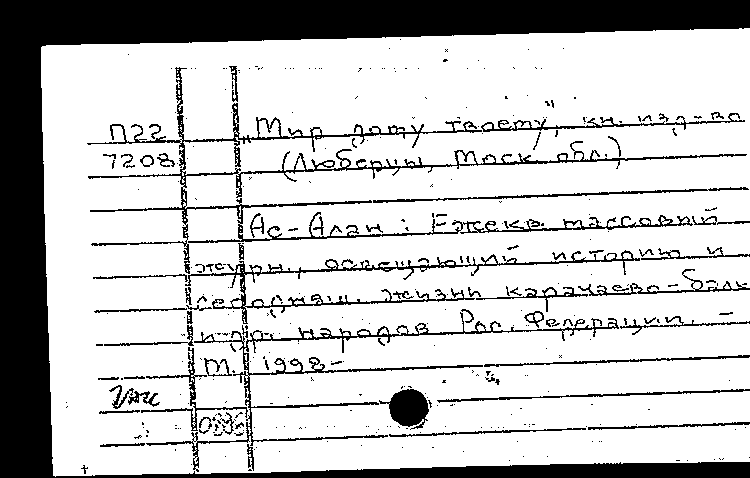 П22 „Мир дому твоему", кн. изд-во
7208 (Люберцы, Моск. обл.)
Ас-Алан : Ежекв. массовый
журн., освещающий историю и
сегодняш. жизнь карачаево-балк
и др. народов Рос. Федерации. -
М., 1998-